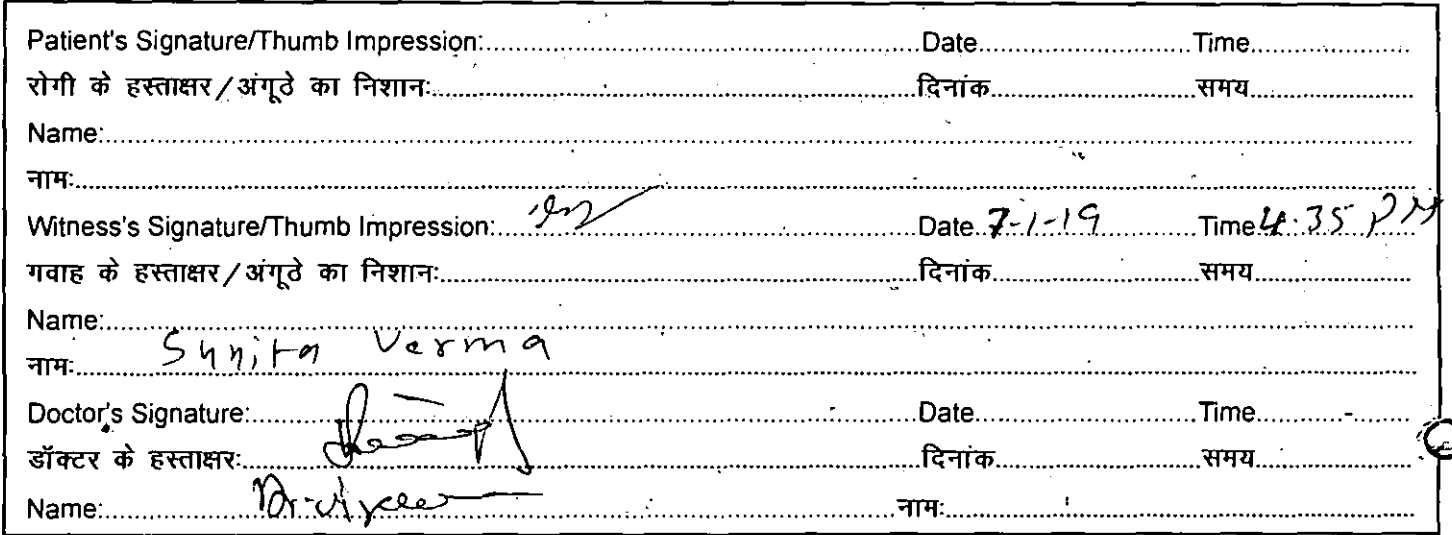 Patient's Signature/Thumb Impression:..........Date..........Time..........
रोगी के हस्ताक्षर/अंगूठे का निशानः..........दिनांक..........समय..........
Name:..........
नामः..........
Witness's Signature/Thumb Impression:..........Date 7-1-19 Time 4.35 PM
गवाह के हस्ताक्षर/अंगूठे का निशानः..........दिनांक..........समय..........
Name:..........
नामः Sunita Verma
Doctor's Signature:..........Date..........Time..........
डॉक्टर के हस्ताक्षरः..........दिनांक..........समय..........
Name: Dr. ..........नामः..........